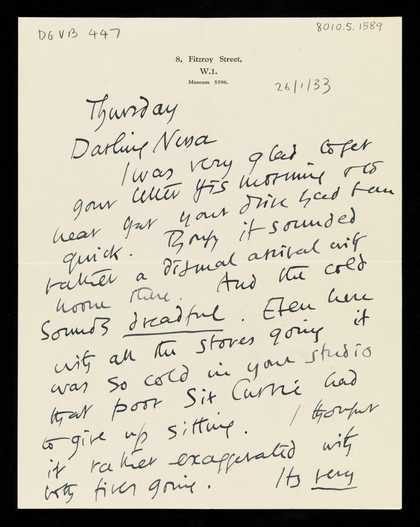 DGVB 447
8010.5.1589
8, Fitzroy Street,
W.1.
Museum 5396.
26/1/33
Thursday
Darling Nessa
I was very glad to get
your letter this morning & to
hear that your drive had been
quick. Though it sounded
rather a dismal arrival with
noone there. And the cold
sounds dreadful. Even here
with all the stoves going it
was so cold in your studio
that poor Sir Currie had
to give up sitting. I thought
it rather exaggerated with
both fires going. Its very